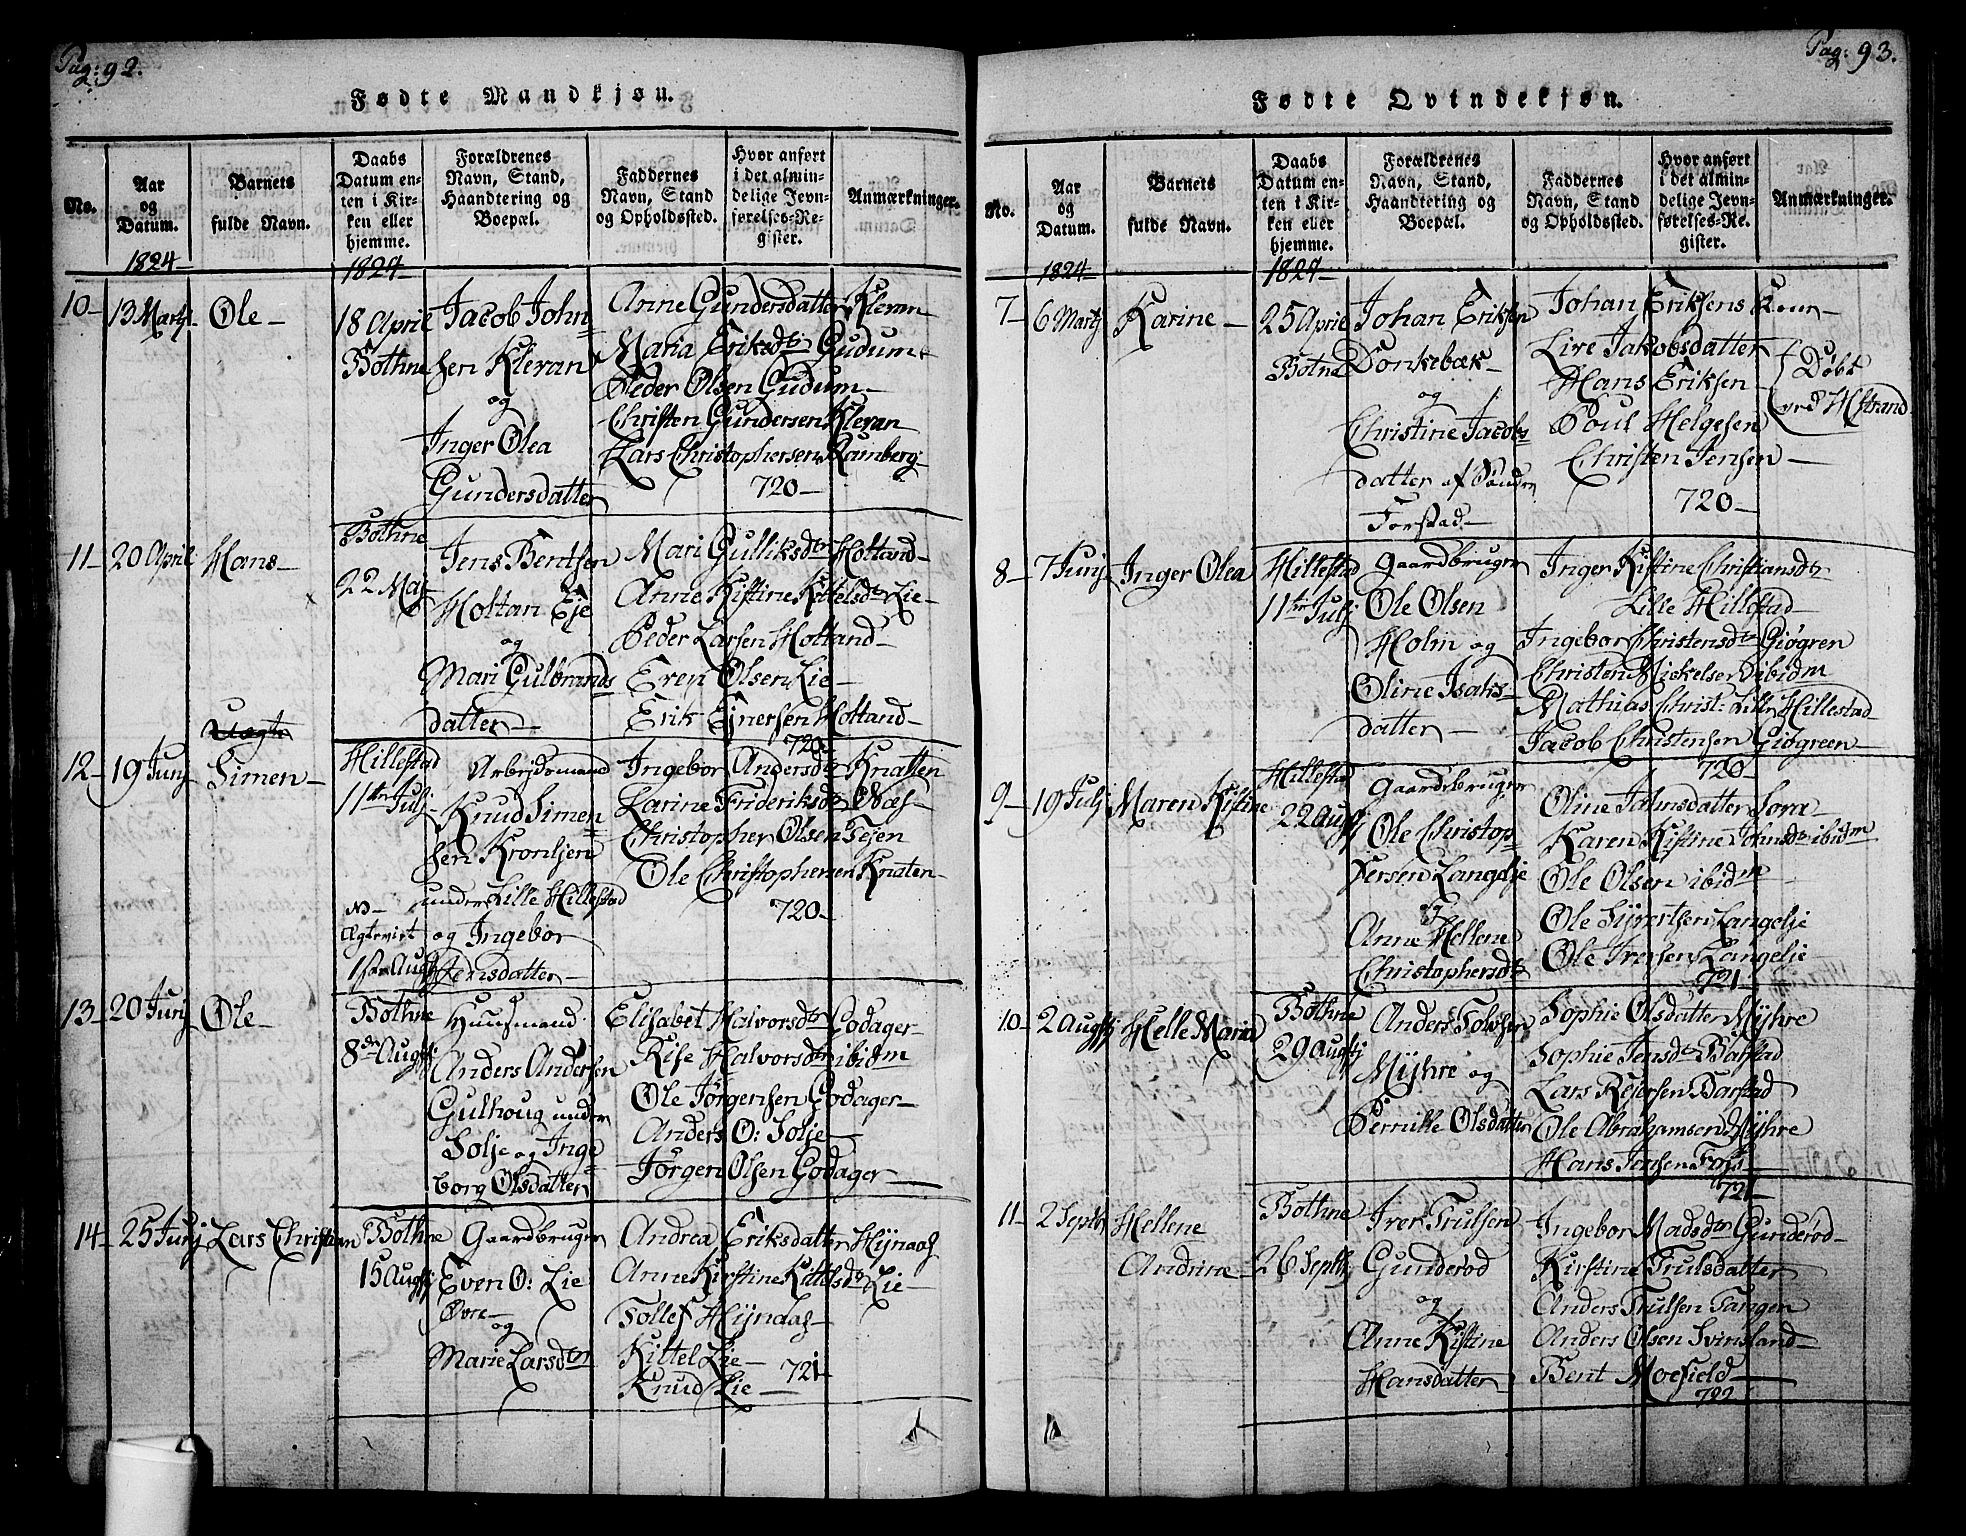 Pag: 92.
Fødte Mandkjøn.
No.
Aar
og
Datum.
Barnets
fulde Navn.
Daabs
Datum en-
ten i Kir-
ken eller
hjemme.
Forældrenes
Navn, Stand,
Haandtering og
Boepæl.
Faddernes
Navn, Stand
og Opholdssted.
Hvor anført
i det almin-
delige Jevn-
førelses-Re-
gister.
Anmærkninger.
1824–
1824–
10–
13 Martj
Ole–
18 April
Bothne
Jacob John=
sen Kleran
og
Inger Olea
Gundersdatter
Anne Gundersdatter Kleran–
Maria Eriksdtr Gudum–
Peder Olsen Gudum–
Christen Gundersen Kleran
Lars Christophersen Ramberg–
720–
11–
20 April
Hans–
Bothne
22 Maj
Jens Bentsen
Holtan Eje
og
Mari Gulbrands
datter–
Mari Gulliksdtr Holtand–
Anne Kistine Kittelsdtr Lie–
Peder Larsen Holtand–
Even Olsen Lie–
Erik Ejnersen Holtand–
720–
Uægte
12–
19 Junj
Simen–
Hillestad
11te Julj
NB–
Ægteviet
1ste Augtj
Arbejdsmand
Knud Simen=
sen Kronljen
under Lille Hillestad
og Ingebor
Jensdatter–
Ingebor Andersdtr Knatten
Karine Frideriksdtr Næs–
Christopher Olsen Tejen
Ole Christophersen Knaten–
720–
13–
20 Junj
Ole–
Bothne
8de Augtj
Huusmand
Anders Andersen
Gulhoug under
Solje og Inge=
borg Olsdatter
Elisabet Halvorsdtr Godager–
Kise Halvorsdtr ibidm
Ole Jørgensen Godager–
Anders O: Solje–
Jørgen Olsen Godager–
14–
25 Junj
Lars Christian
Bothne
15 Augtj
Gaardbruger
Even O: Lie
Øvre–
og
Marie Larsdtr
Andrea Eriksdatter Hÿndas
Anne Kirstine Kittelsdtr Lie–
Tollef Hÿndas–
Kittel Lie–
Knud Lie–
721–
Pag: 93.
Fødte Qvindekjøn.
No.
Aar
og
Datum.
Barnets
fulde Navn.
Daabs
Datum en-
ten i Kir-
ken eller
hjemme.
Forældrenes
Navn, Stand,
Haandtering og
Boepæl.
Faddernes
Navn, Stand
og Opholdssted.
Hvor anført
i det almin-
delige Jevn-
førelses-Re-
gister.
Anmærkninger.
1824–
1824–
7–
6 Martj
Karine–
25 Aprie
Botne
Johan Eriksen
Donkebæk–
og
Christine Jacobs
datter af Søndre
Forstad–
Johan Eriksens Kone–
Live Jakobsdatter
Hans Eriksen–
Poul Helgesen
Christen Jensen–
Døbt
ved HStrand
720–
8–
7 Junj
Inger Olea
Hillestad
11te Julj
Gaardbruger
Ole Olsen
Holm og
Oline Isaks=
datter–
Inger Kistine Christiansdtr
Lille Hillestad
Ingebor Christensdtr Giøgren
Christen Mickelsen ibidm
Mathias Christ: Lille Hillestad–
Jacob Christensen Giøgreen–
720–
9–
19 Julj
Maren Kistine
Hillestad
22 Augtj
Gaardbruger
Ole Christop
hersen Langelje
og
Anne Hellene
Christophersdtr
Oline Johnsdatter
Karen Kistine Johnsdtr ibidm
Ole Olsen ibidm
Ole Sÿvertsen Langelje
Ole Iversen Langelie
721–
10–
2 Augtj
Helle Maria
Bothne
29 Augtj
Anders Tolvsen
Mÿhre og
Pernille Olsdatter
Sophie Olsdatter Mÿhre
Sophie Jensdtr Barstad
Lars Rejersen Barstad
Ole Abrahamsen Mÿhre
Hans Jensen
721–
11–
2 Septbr
Hellene
Andrine–
Bothne
26 Septbr
Iver Trulsen
Gunderød
og
Anne Kistine
Hansdatter
Ingebor Madsdtr Gunderød–
Kirstine Trulsdatter
Anders Trulsen Tangen
Anders Olsen Svinsland–
Bent Moefield–
722–